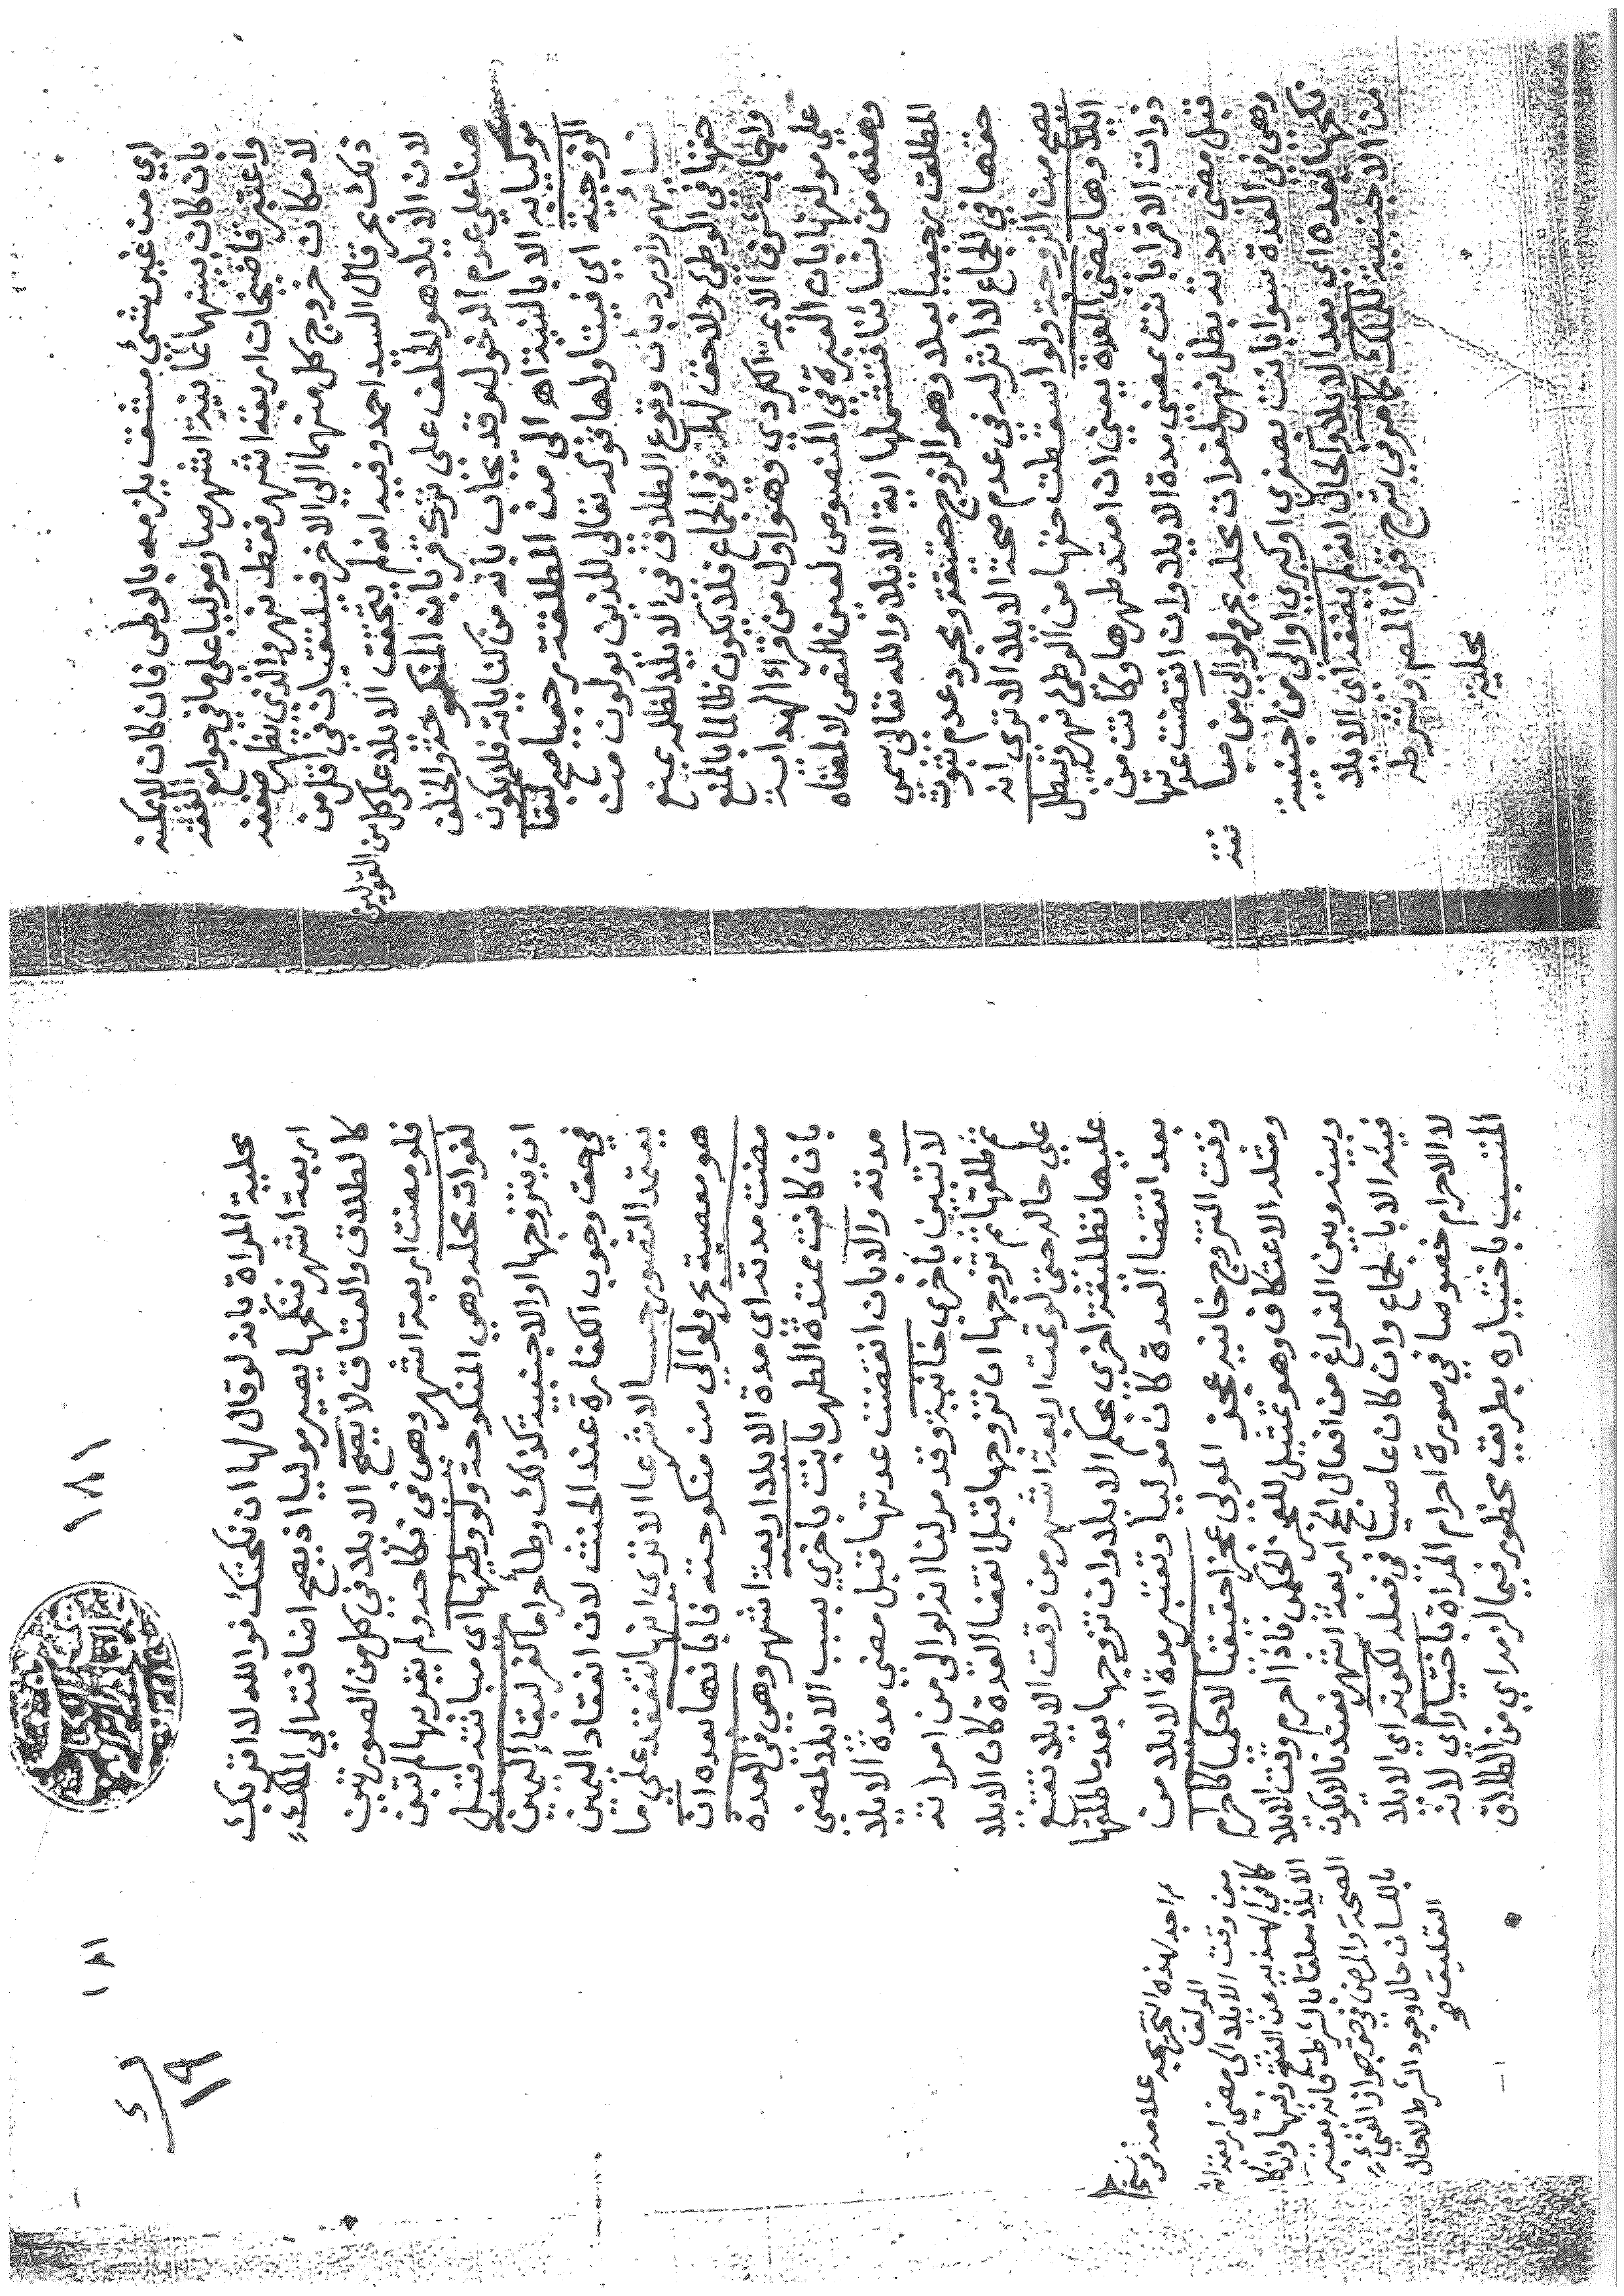 اي من غير شئ مشق يلزمه بالوطى فان كان لا يمكنه
بان كان بينهما ثمانية اشهر صار موليا على ما في جوامع الفقه
واعتبر قاضيخان اربعة اشهر فقط نهر والذي يظهر ضعفه
لامكان خروج كل منهما الى الاخر فيلتقيان في اقل من
ذلك بحر قال السيد احمد وفيه انه لم يتحقق الايلاء على كل من القولين
لان الايلاء هو الحلف على ترك قربانه المنكوحة والحلف
هنا على عدم الدخول وقد يجاب بانه من كناياته فلا يكون
موليا به الا بالنية اهـ الى من المطلقة رجعيا صح لبقا
الزوجية اي فيتناولها قوله تعالى للذين يولون من
نسائهم لا يرد بان وقوع الطلاق في الايلاء لظلمه بمنع
حقها في الوطى ولا حق لها في الجماع فلا يكون ظالما بالمنع
واجاب شمس الايمة الكردي وهو اول من قرا الهداية
على مولفها بان العبرة في المنصوص لعين النص لا لمعناه
وهذه من نسائنا فتشملها اية الايلاء والله تعالى سمى
المطلق رجعيا بعلا وهو الزوج حقيقة ومجرد عدم ثبوت
حقها في الجماع لا اثر له في عدم صحة الايلاء الا ترى انه
يصح من الزوجة ولو اسقطت حقها من الوطى نهر ويبطل
ايلاوها بمضى العدة يعني ان امتد طهرها وكانت من
ذوات الاقرا بانت بمضى مدة الايلاء وان انقضت عدتها
قبل مضى مدته بطل نهر لفوات محله بحر ولو الى من مبا نته
وهي في العدة سوا بانت بصغرى او كبرى او الى من اجنبية
نكحها بعده اي بعد الايلاء والحال انه لم يضفه اي الايلاء
من الاجنبية للملك كما مر في شرح قول المص وشرطه
محلية
١٨١
١٨١
محلية المراة بانه لو قال لها ان نكحتك فوالله لا اقربك
اربعة اشهر فنكحها يصير موليا اذ يصح اضافته الى الملك
كالطلاق والعتاق لا يصح الايلاء في كل من الصورتين
فلو مضت اربعة اشهر وهي في نكاحه ولم يقربها لم تبن
لفوات محله وهي المنكوحة ولو وطيها اي مبانته قبل
ان يتزوجها او الاجنبية كذلك وطأ حراما كفر لبقا اليمين
في حق وجوب الكفارة عند الحنث لان انعقاد اليمين
يعتمد التصور حسا لا شرعا الا ترى انها تنعقد على ما
هو معصية بحر ولو الى من منكوحته فابانها بعده ان
مضت مدته اي مدة الايلاء اربعة اشهر وهي في العدة
بان كانت ممتدة الطهر بانت باخرى بسبب الايلاء لمضى
مدته والا بان انقضت عدتها قبل مضى مدة الايلاء
لا تبين باخرى خانية وقد مر لنا انه لو الى من امراته
ثم طلقها ثم تزوجها ان تزوجها قبل انقضا العدة كان الايلاء
على حاله حتى لو تمت اربعة اشهر من وقت الايلاء تقع
عليها تطليقة اخرى بحكم الايلاء وان تزوجها بعد ما طلقها
بعد انقضا العدة كان موليا وتعتبر مدة الايلاء من
وقت التزوج خانيه عجز المولى عجزا حقيقيا لا حكميا كاحرام
ومثله الاعتكاف وهو تمثيل للعجز الحكمى فاذا احرم وقت الايلاء
وبينه وبين الفراغ من افعال الحج اربعة اشهر فعندنا لا يكون
فيئه الا بالجماع وان كان عاصيا في فعله لكونه اي الايلاء
لا الاحرام خصوصا في صورة احرام المراة باختياره اي لانه
المتسبب باختياره بطريق محظور فيما لزمه اي من الطلاق
راجع هذه التحريجة
علامة
المولف
من وقت الايلاء الى مضى اربعة ا
كما في الهنديه عن الفتح
الايلاء معلقا بالشرط فانه تعتبر
الصحة والمرض في حق جواز الفئ
باللسان حال وجود الشرط لا حال
التعليق